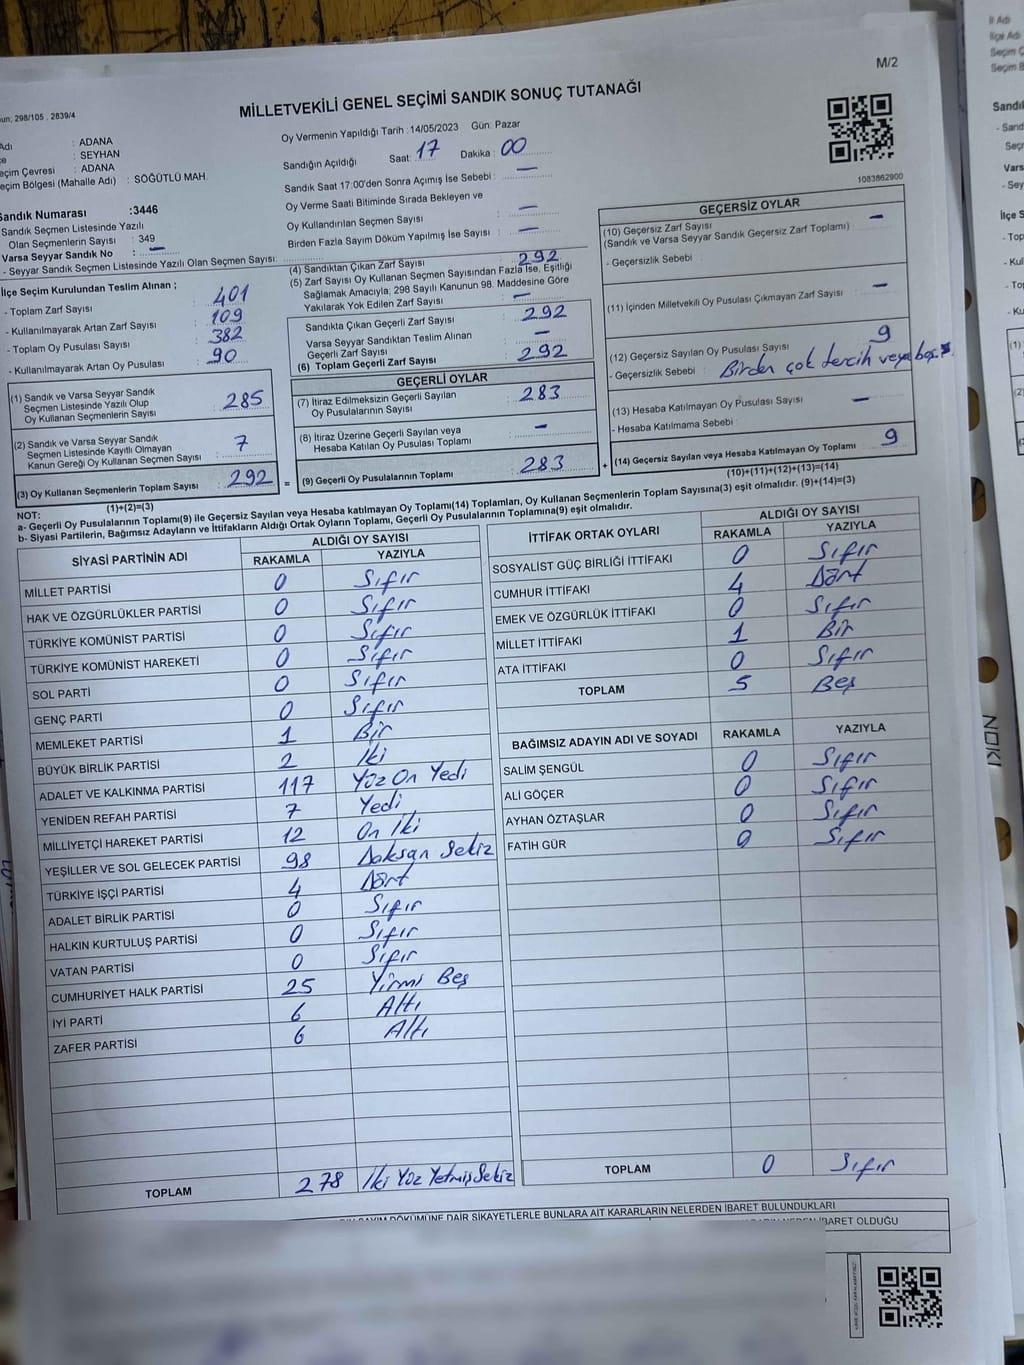 M/2
MİLLETVEKİLİ GENEL SEÇİMİ SANDIK SONUÇ TUTANAĞI
298/105 . 2839/4
: ADANA
: SEYHAN
Çevresi : ADANA
Bölgesi (Mahalle Adı) : SÖĞÜTLÜ MAH.
Sandık Numarası :3446
Sandık Seçmen Listesinde Yazılı
Olan Seçmenlerin Sayısı : 349
Varsa Seyyar Sandık No : —
- Seyyar Sandık Seçmen Listesinde Yazılı Olan Seçmen Sayısı:
Oy Vermenin Yapıldığı Tarih : 14/05/2023 Gün: Pazar
Sandığın Açıldığı Saat: 17 Dakika : 00
Sandık Saat 17:00'den Sonra Açımış İse Sebebi : —
Oy Verme Saati Bitiminde Sırada Bekleyen ve
Oy Kullandırılan Seçmen Sayısı : —
Birden Fazla Sayım Döküm Yapılmış İse Sayısı : —
1083862900
İlçe Seçim Kurulundan Teslim Alınan ;
- Toplam Zarf Sayısı : 401
- Kullanılmayarak Artan Zarf Sayısı : 109
- Toplam Oy Pusulası Sayısı : 382
- Kullanılmayarak Artan Oy Pusulası : 90
(1) Sandık ve Varsa Seyyar Sandık
Seçmen Listesinde Yazılı Olup
Oy Kullanan Seçmenlerin Sayısı : 285
(2) Sandık ve Varsa Seyyar Sandık
Seçmen Listesinde Kayıtlı Olmayan
Kanun Gereği Oy Kullanan Seçmen Sayısı : 7
(3) Oy Kullanan Seçmenlerin Toplam Sayısı : 292
(1)+(2)=(3)
(4) Sandıktan Çıkan Zarf Sayısı : 292
(5) Zarf Sayısı Oy Kullanan Seçmen Sayısından Fazla İse, Eşitliği
Sağlamak Amacıyla, 298 Sayılı Kanunun 98. Maddesine Göre
Yakılarak Yok Edilen Zarf Sayısı : —
Sandıkta Çıkan Geçerli Zarf Sayısı : 292
Varsa Seyyar Sandıktan Teslim Alınan
Geçerli Zarf Sayısı : —
(6) Toplam Geçerli Zarf Sayısı : 292
GEÇERLİ OYLAR
(7) İtiraz Edilmeksizin Geçerli Sayılan
Oy Pusulalarının Sayısı : 283
(8) İtiraz Üzerine Geçerli Sayılan veya
Hesaba Katılan Oy Pusulası Toplamı : —
= (9) Geçerli Oy Pusulalarının Toplamı : 283 +
GEÇERSİZ OYLAR
(10) Geçersiz Zarf Sayısı : —
(Sandık ve Varsa Seyyar Sandık Geçersiz Zarf Toplamı)
- Geçersizlik Sebebi :
(11) İçinden Milletvekili Oy Pusulası Çıkmayan Zarf Sayısı : —
(12) Geçersiz Sayılan Oy Pusulası Sayısı : 9
- Geçersizlik Sebebi : Birden çok tercih veya boş
(13) Hesaba Katılmayan Oy Pusulası Sayısı : —
- Hesaba Katılmama Sebebi :
(14) Geçersiz Sayılan veya Hesaba Katılmayan Oy Toplamı : 9
(10)+(11)+(12)+(13)=(14)
NOT:
a- Geçerli Oy Pusulalarının Toplamı(9) ile Geçersiz Sayılan veya Hesaba katılmayan Oy Toplamı(14) Toplamları, Oy Kullanan Seçmenlerin Toplam Sayısına(3) eşit olmalıdır. (9)+(14)=(3)
b- Siyasi Partilerin, Bağımsız Adayların ve İttifakların Aldığı Ortak Oyların Toplamı, Geçerli Oy Pusulalarının Toplamına(9) eşit olmalıdır.
SİYASİ PARTİNİN ADI ALDIĞI OY SAYISI
RAKAMLA YAZIYLA
MİLLET PARTİSİ 0 Sıfır
HAK VE ÖZGÜRLÜKLER PARTİSİ 0 Sıfır
TÜRKİYE KOMÜNİST PARTİSİ 0 Sıfır
TÜRKİYE KOMÜNİST HAREKETİ 0 Sıfır
SOL PARTİ 0 Sıfır
GENÇ PARTİ 0 Sıfır
MEMLEKET PARTİSİ 1 Bir
BÜYÜK BİRLİK PARTİSİ 2 İki
ADALET VE KALKINMA PARTİSİ 117 Yüz On Yedi
YENİDEN REFAH PARTİSİ 7 Yedi
MİLLİYETÇİ HAREKET PARTİSİ 12 On İki
YEŞİLLER VE SOL GELECEK PARTİSİ 98 Doksan Sekiz
TÜRKİYE İŞÇİ PARTİSİ 4 Dört
ADALET BİRLİK PARTİSİ 0 Sıfır
HALKIN KURTULUŞ PARTİSİ 0 Sıfır
VATAN PARTİSİ 0 Sıfır
CUMHURİYET HALK PARTİSİ 25 Yirmi Beş
İYİ PARTİ 6 Altı
ZAFER PARTİSİ 6 Altı
TOPLAM 278 İki Yüz Yetmiş Sekiz
İTTİFAK ORTAK OYLARI ALDIĞI OY SAYISI
RAKAMLA YAZIYLA
SOSYALİST GÜÇ BİRLİĞİ İTTİFAKI 0 Sıfır
CUMHUR İTTİFAKI 4 Dört
EMEK VE ÖZGÜRLÜK İTTİFAKI 0 Sıfır
MİLLET İTTİFAKI 1 Bir
ATA İTTİFAKI 0 Sıfır
TOPLAM 5 Beş
BAĞIMSIZ ADAYIN ADI VE SOYADI RAKAMLA YAZIYLA
SALİM ŞENGÜL 0 Sıfır
ALİ GÖÇER 0 Sıfır
AYHAN ÖZTAŞLAR 0 Sıfır
FATİH GÜR 0 Sıfır
TOPLAM 0 Sıfır
SAYIM DÖKÜMÜNE DAİR ŞİKAYETLERLE BUNLARA AİT KARARLARIN NELERDEN İBARET BULUNDUKLARI
İBARET OLDUĞU